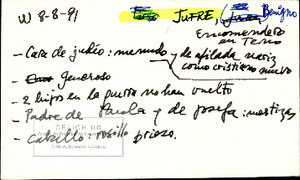 W 8-8-91 JUFRE, Juan Benigno
Encomendero
en Teno
- Cara de judío: menudo y de afilada nariz
como cristiano nuevo
- Generoso
- 2 hijos en la guerra no han vuelto
- Padre de Paula y de Josefa: mestizas
- Caballo: rosillo prieto.